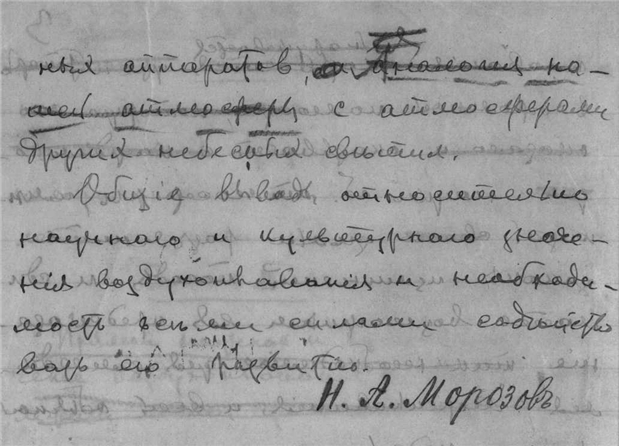 ныхъ аппаратовъ, и Аналогія на-
шей атмосферы съ атмосферами
другихъ небесныхъ свѣтилъ.
Общіе выводы относительно
научнаго и культурнаго значе-
нія воздухоплаванія и необходи-
мость всѣми силами содѣйство
вать его развитію.
Н. А. Морозовъ